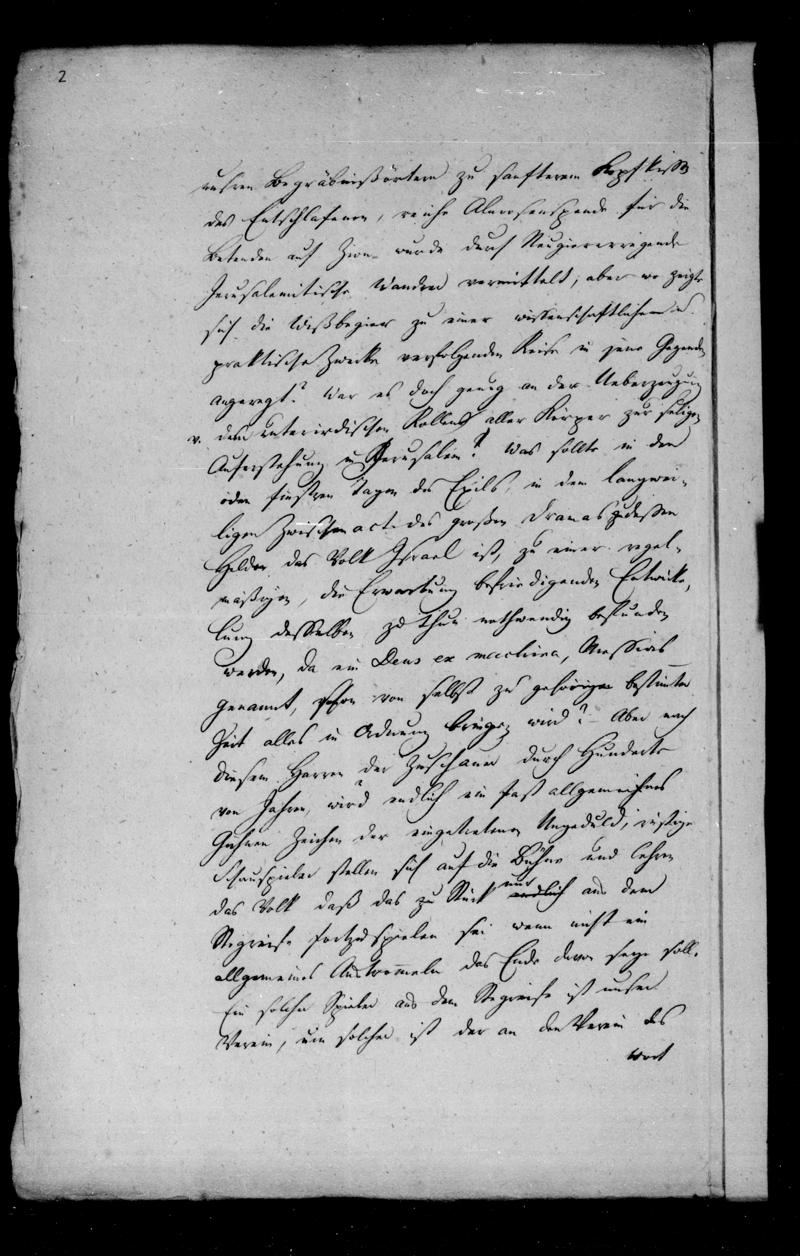 2
unsren Begräbnißörtern zu sanfterem Kopfkissen
des Entschlafenen, reiche Almosenspende für die
Betenden auf Zion wurde durch Neugiererregende
Jerusalemitische Wandrer vermittelt; aber wo zeigte
sich die Wißbegier zu einer wissenschaftlichen u.
praktische Zwecke verfolgenden Reise in jene Gegenden
angeregt? War es doch genug an der Ueberzeugung
v. dem unterirdischen Rollen aller Körper zur seligen
Auferstehung in Jerusalem? Was sollte in den
öden finstren Tagen des Exils, in dem langwei-
ligen Zwischenact des großen Dramas, dessen
Helden das Volk Israel ist, zu einer regel-
mäßigen, die Erwartung befriedigenden Entwicke-
lung desselben zu thun nothwendig befunden
werden, da ein Deus ex machina, Messias
genannt, schon von selbst zu gehörige bestimmter
Zeit alles in Ordnung bringen wird? Aber nach
diesem Harren der Zuschauer durch Hunderte
von Jahren, wird endlich ein fast allgemeines
Gähnen Zeichen der eingetretenen Ungeduld; rüstige
Schauspieler stellen sich auf die Bühne und lehren
das Volk daß das zu Stück nur endlich aus dem
Stegreife fortzuspielen sei wenn nicht ein
allgemeines Austrommeln das Ende davon seyn soll.
Ein solcher Spieler aus dem Stegreife ist unser
Verein, ein solcher ist der an den Verein des
Wort